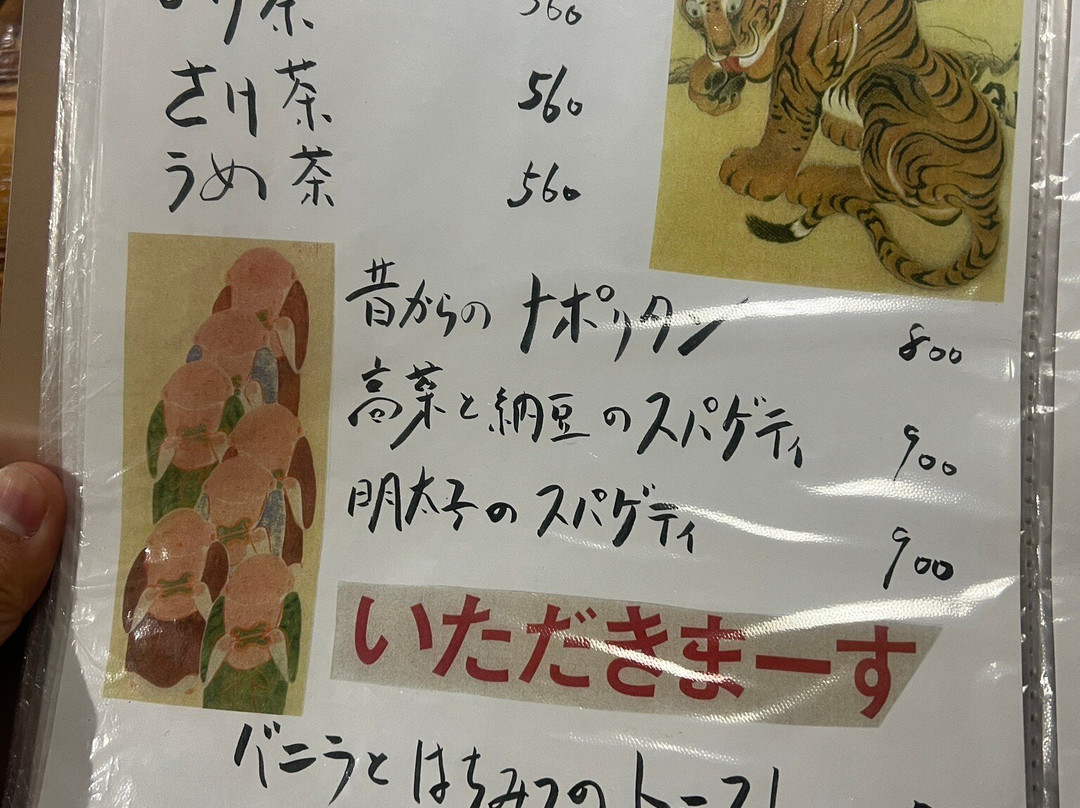 茶 560
さけ茶 560
うめ茶 560
昔からのナポリタン 800
高菜と納豆のスパゲティ 900
明太子のスパゲティ 900
いただきまーす
バニラとはちみつのトースト